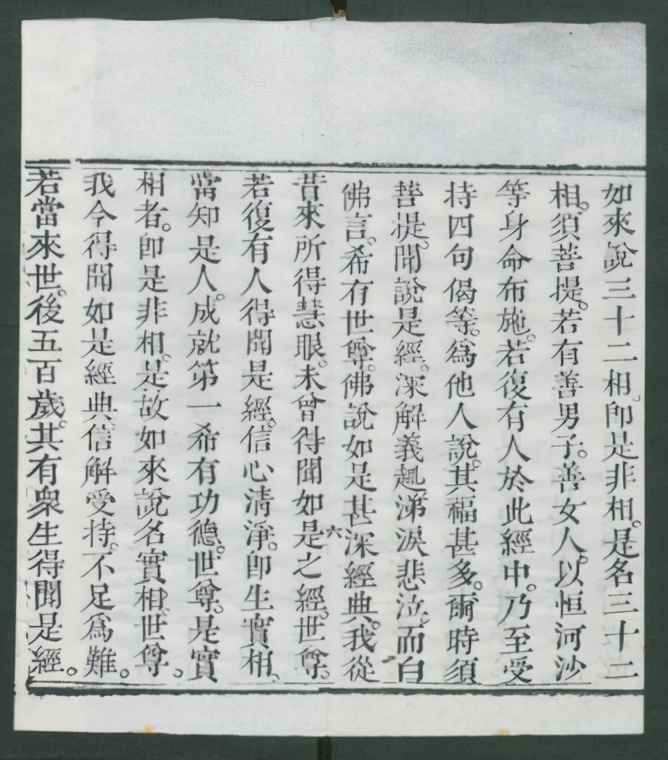 如來說三十二相。卽是非相。是名三十二
相。須菩提。若有善男子。善女人。以恒河沙
等身命布施。若復有人於此經中。乃至受
持四句偈等。爲他人說。其福甚多。爾時須
菩提。聞說是經。深解義趣。涕淚悲泣。而白
佛言。希有世尊。佛說如是甚深經典。我從
昔來所得慧眼。未曾得聞如是之經。世尊。
若復有人得聞是經。信心清淨。卽生實相。
當知是人。成就第一希有功德。世尊。是實
相者。卽是非相。是故如來說名實相。世尊。
我今得聞如是經典。信解受持。不足爲難。
若當來世。後五百歲。其有衆生得聞是經。
六